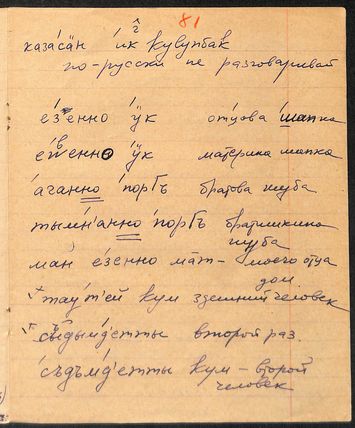 81
каза́са̄н и́к кувупбак
по-русски не разговаривай
е́зенно ӱ́к отцова шапка
е́венно ӱ́к материна шапка
а́ганно по́рГъ братова шуба
тымн'анно по́рГъ братишкина
шуба
ман е́зенно ма̄т - моего отца
дом.
таут'ей кум здешний человек
съдымд'етты второй раз.
съдъмд'етты кум - второй
человек